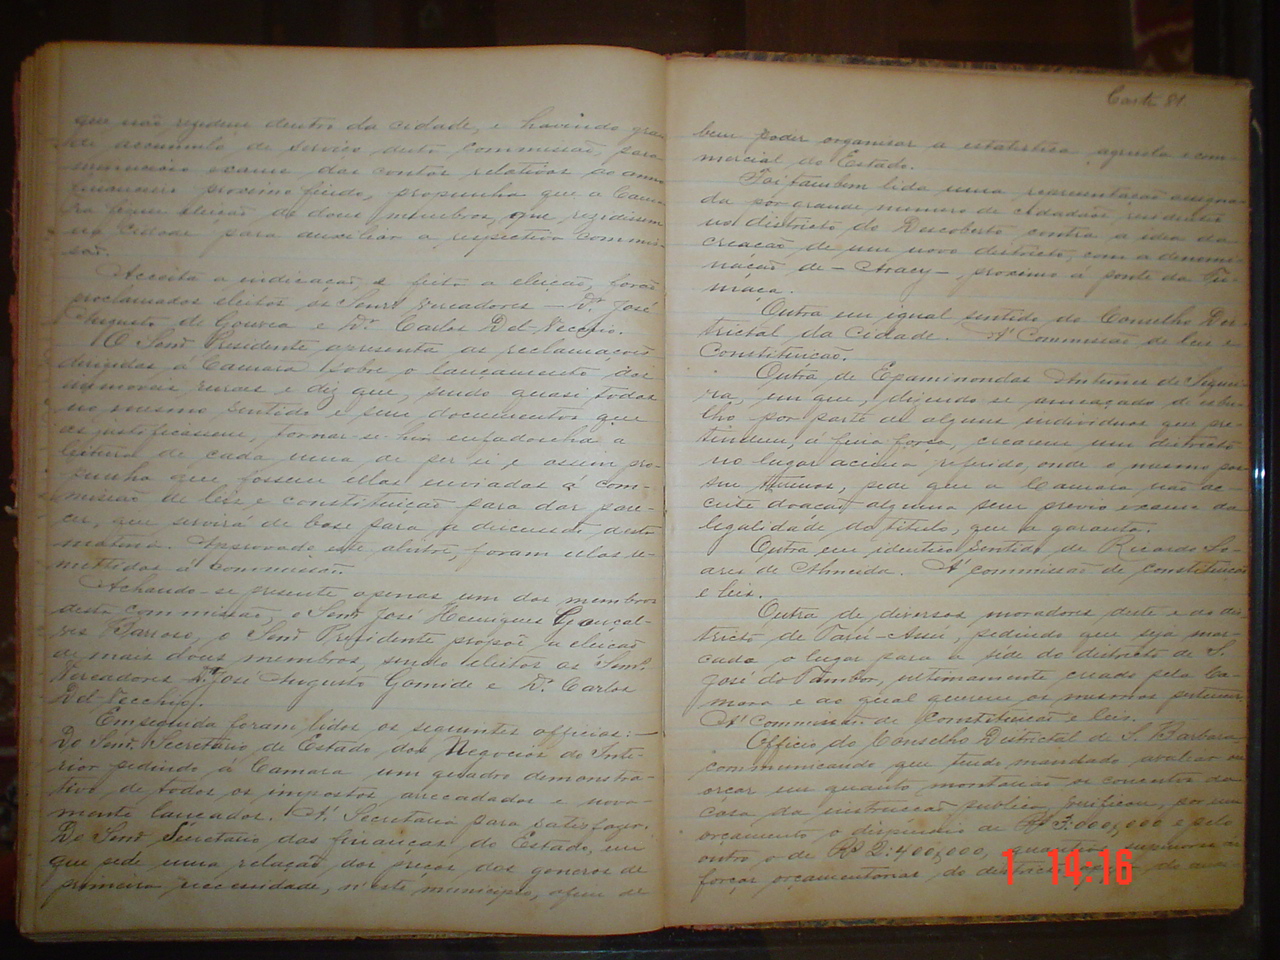 que não residem dentro da cidade, e havendo gran-
de accumulo de serviço desta Commissão, para
minucioso exame das contas relativas ao anno
financeiro proximo findo, propunha que a Cama-
ra fizesse eleição de dous membros, que rezidissem
na cidade para auxiliar a respectiva commis-
são.
Acceita a indicação, e feita a eleição, forão
proclamados eleitos os Senrs Vereadores - Dr José
Augusto de Gouvea e Dr Carlos Del-Vecchio.
O Senr Presidente apresenta as reclamações
dirigidas á Camara sobre o lançamento dos
immoveis ruraes e diz que, sendo quasi todas
no mesmo sentido e sem documentos que
as justificassem, tornar-se-hia enfadonha a
leitura de cada uma de per si e assim pro-
punha que fossem ellas enviadas á com-
missão de leis e constituição para dar pare-
cer, que servirá de base para a discussão desta
materia. Approvado este alvitre, foram ellas re-
mettidas á commissão.
Achando-se presente apenas um dos membros
desta commissão, o Senr José Henriques Gonçal-
ves Barroso, o Senr Presidente propoz a eleição
de mais dous membros, sendo eleitos os Senrs
Vereadores Dr José Augusto Gomide e Dr Carlos
Del-Vecchio.
Em seguida foram lidos os seguintes officios: -
Do Senr Secretario de Estado dos Negocios do Inte-
rior pedindo á Camara um quadro demonstra-
tivo de todos os impostos arrecadados e nova-
mente lançados. A' Secretaria para satisfazer.
Do Senr Secretario das finanças do Estado, em
que pede uma relação dos preços dos generos de
primeira necessidade, n'este municipio, afim de
81.
bem poder organisar a estatistica agricola e com-
mercial do Estado.
Foi tambem lida uma representação assigna-
da por grande numero de cidadãos residentes
no districto do Descoberto contra a idea da
creação de um novo districto, com a denomi-
nação de - Aracy - proximo á ponte da Fu-
maça.
Outra em igual sentido do Conselho Dis-
trictal da Cidade. A' Commissão de leis e
Constituição.
Outra de Epaminondas Antunes de Siquei-
ra, em que, dizendo se ameaçado de esbu-
lho por parte de alguns individuos que pre-
tendem, á fina força, crearem um districto
no lugar acima referido, onde o mesmo pos-
sue terrenos, pede que a Camara não ac-
ceite doação alguma sem previo exame da
legalidade do titulo, que a garanta.
Outra em identico sentido de Ricardo So-
ares de Almeida. A' commissão de constituição
e leis.
Outra de diversos moradores deste e do dis-
tricto de Taru-Assu, pedindo que seja mar-
cado o lugar para a séde do districto de S.
José do Tambor, ultimamente creado pela Ca-
mara e ao qual querem os mesmos pertencer.
A' Commissão de Constituição e leis.
Officio do Conselho Districtal de S. Barbara
communicando que tendo mandado avaliar ou
orçar em quanto montarião os concertos da
casa da instrucção publica, verificou, por um
orçamento o dispendio de Rs 3:000,000 e pelo
outro o de Rs 2:400,000, quantias superiores as
forças orçamentarias do districto
1 14:16